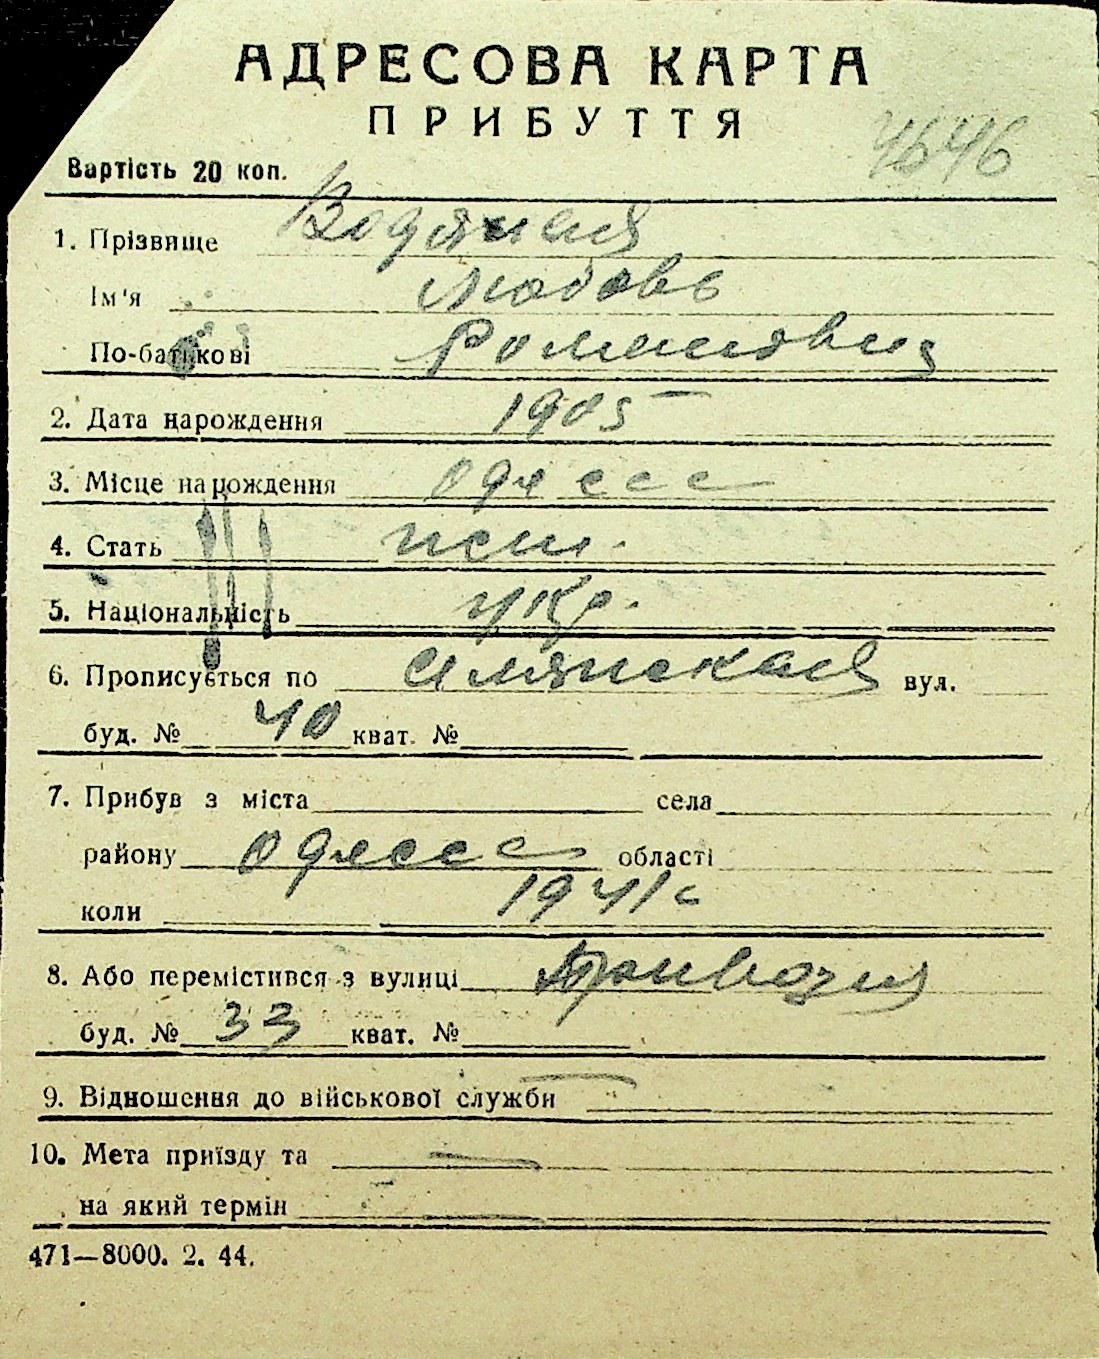 АДРЕСОВА КАРТА
ПРИБУТТЯ
4646
Вартість 20 коп.
1. Прізвище Водяная
Ім'я Любовь
По-батькові Романовна
2. Дата народження 1905
3. Місце народження Одесса
4. Стать жен.
5. Національність укр.
6. Прописується по вул.
буд. № 40 кват. №
7. Прибув з міста села
району Одесса області
коли 1941 г
8. Або перемістився з вулиці
буд. № 33 кват. №
9. Відношення до військової служби —
10. Мета приїзду та —
на який термін —
471—8000. 2. 44.